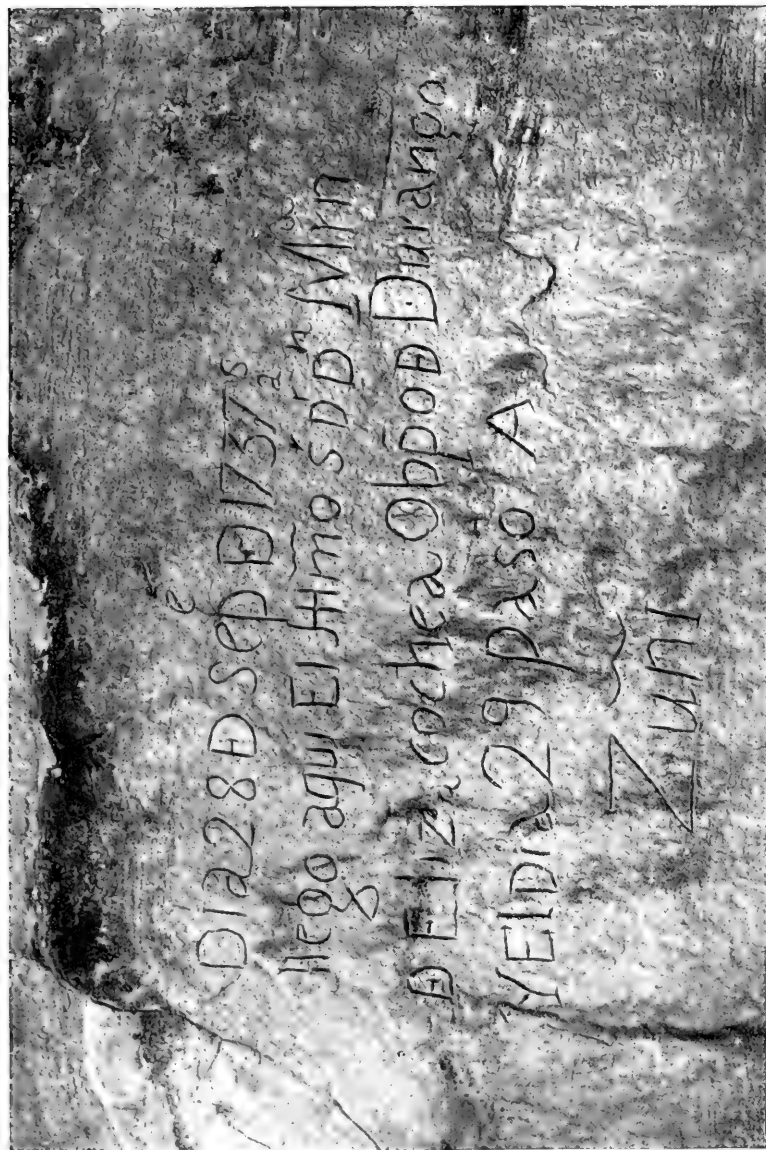 Dia 28 D Sepe D 1737 as
llego aqui El Illmo Sr Dn D Mrn
D Elizacochea Obpo D Durango
Y El Dia 29 paso A
Zuni